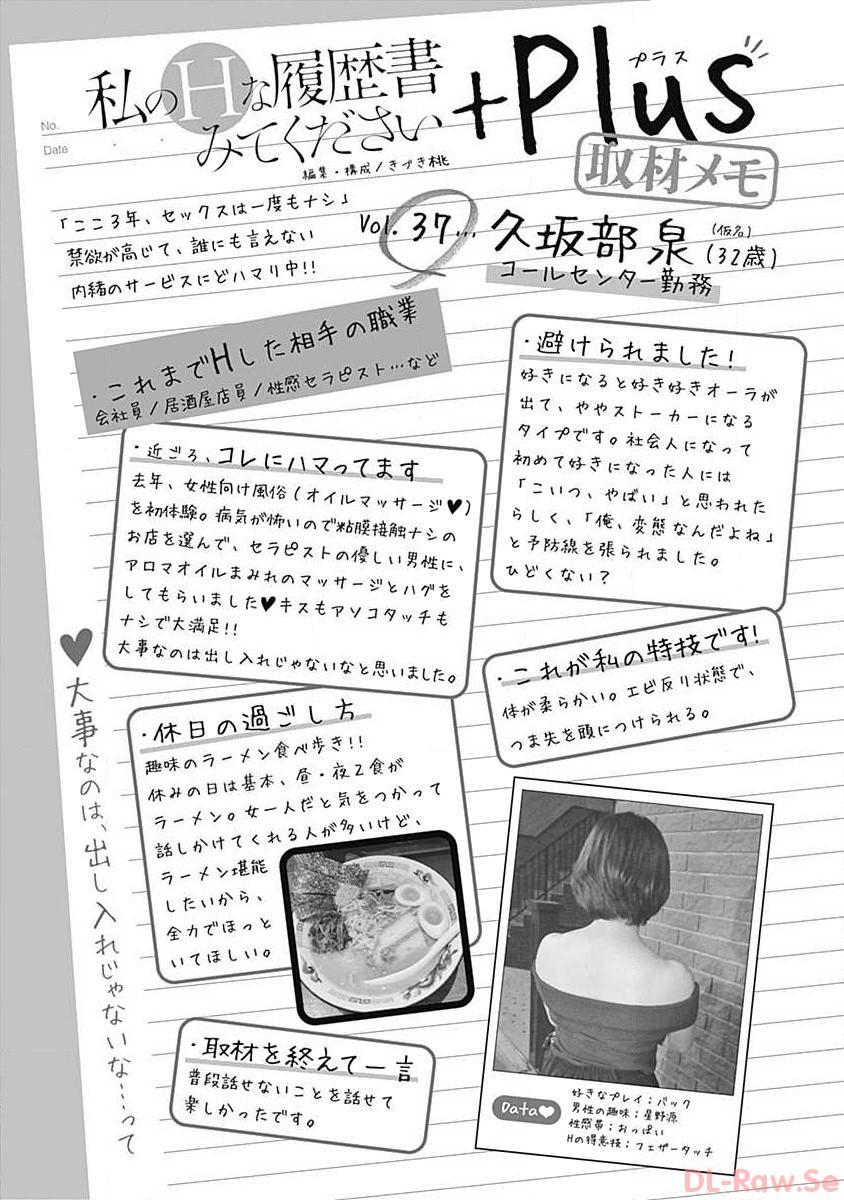 No.
Date
私のHな履歴書
みてください
+Plus
プラス
取材メモ
編集・構成/きづき桃
「ここ3年、セックスは一度もナシ」
禁欲が高じて、誰にも言えない
内緒のサービスにどハマり中!!
Vol. 37... 久坂部泉 (仮名) (32歳)
コールセンター勤務
・これまでHした相手の職業
会社員/居酒屋店員/性感セラピスト…など
・避けられました!
好きになると好き好きオーラが
出て、ややストーカーになる
タイプです。社会人になって
初めて好きになった人には
「こいつ、やばい」と思われた
らしく、「俺、変態なんだよね」
と予防線を張られました。
ひどくない?
・近ごろ、コレにハマってます
去年、女性向け風俗(オイルマッサージ♥)
を初体験。病気が怖いので粘膜接触ナシの
お店を選んで、セラピストの優しい男性に、
アロマオイルまみれのマッサージとハグを
してもらいました♥キスもアソコタッチも
ナシで大満足!!
大事なのは出し入れじゃないなと思いました。
・これが私の特技です!
体が柔らかい。エビ反り状態で、
つま先を頭につけられる。
・休日の過ごし方
趣味のラーメン食べ歩き!!
休みの日は基本、昼・夜2食が
ラーメン。女一人だと気をつかって
話しかけてくれる人が多いけど、
ラーメン堪能
したいから、
全力でほっと
いてほしい。
♥大事なのは、出し入れじゃないな…って
・取材を終えて一言
普段話せないことを話せて
楽しかったです。
Data♥
好きなプレイ;バック
男性の趣味;星野源
性感帯;おっぱい
Hの得意技;フェザータッチ
DL-Raw.Se